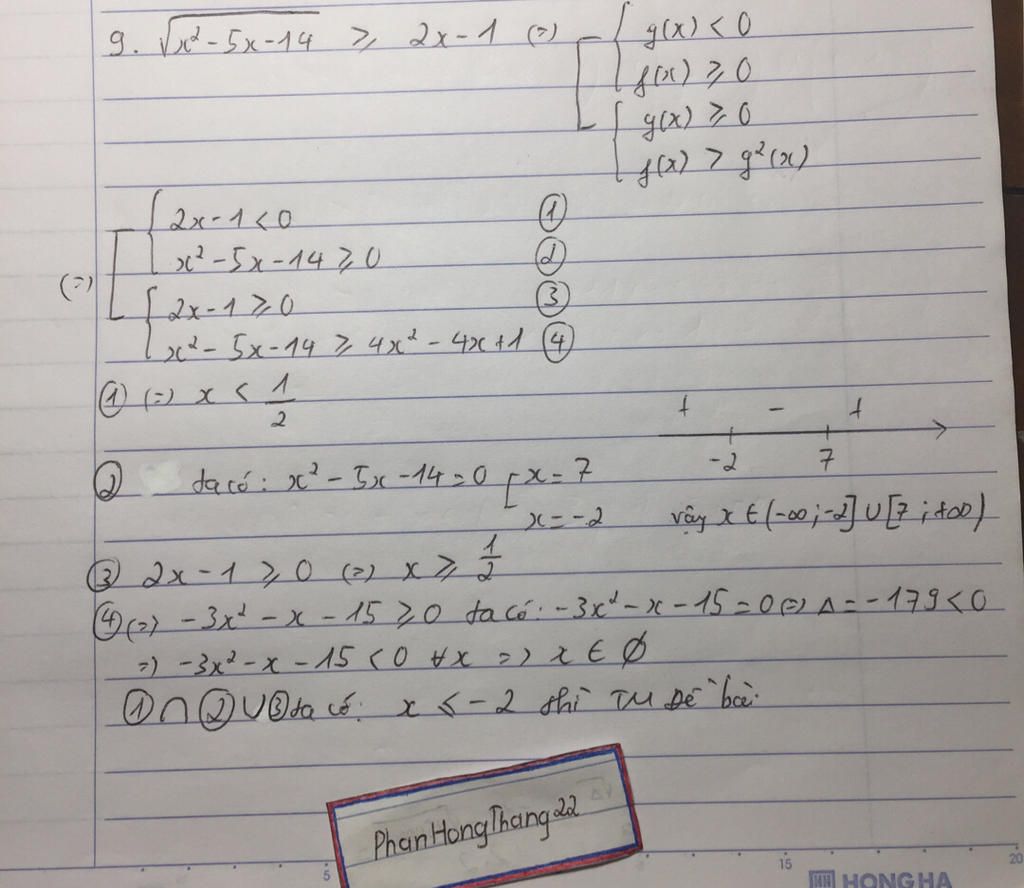 9. √(x² - 5x - 14) ≥ 2x - 1 (=) [ { g(x) < 0
f(x) ≥ 0
{ g(x) ≥ 0
f(x) > g²(x)
(=) [ { 2x - 1 < 0 ①
x² - 5x - 14 ≥ 0 ②
{ 2x - 1 ≥ 0 ③
x² - 5x - 14 ≥ 4x² - 4x + 1 ④
① (=) x < 1/2
+ - +
-2 7
② ta có: x² - 5x - 14 = 0 [ x = 7
x = -2 vậy x ∈ (-∞; -2] ∪ [7; +∞)
③ 2x - 1 ≥ 0 (=) x ≥ 1/2
④ (=) -3x² - x - 15 ≥ 0 ta có: -3x² - x - 15 = 0 (=) Δ = -179 < 0
=) -3x² - x - 15 < 0 ∀x => x ∈ ∅
① ∩ ② ∪ ③ ta có: x ≤ -2 thì TM Đề bài.
PhanHongThang22
5 15 20
HONG HA